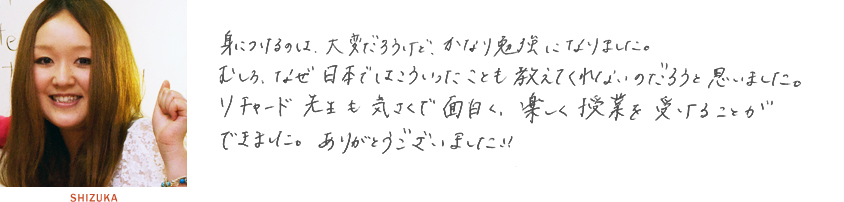 身につけるのは、大変だろうけど、かなり勉強になりました。
むしろ、なぜ日本ではこういったことも教えてくれないのだろうと思いました。
リチャード先生も気さくで面白く、楽しく授業を受けることが
できました。ありがとうございました!!
SHIZUKA